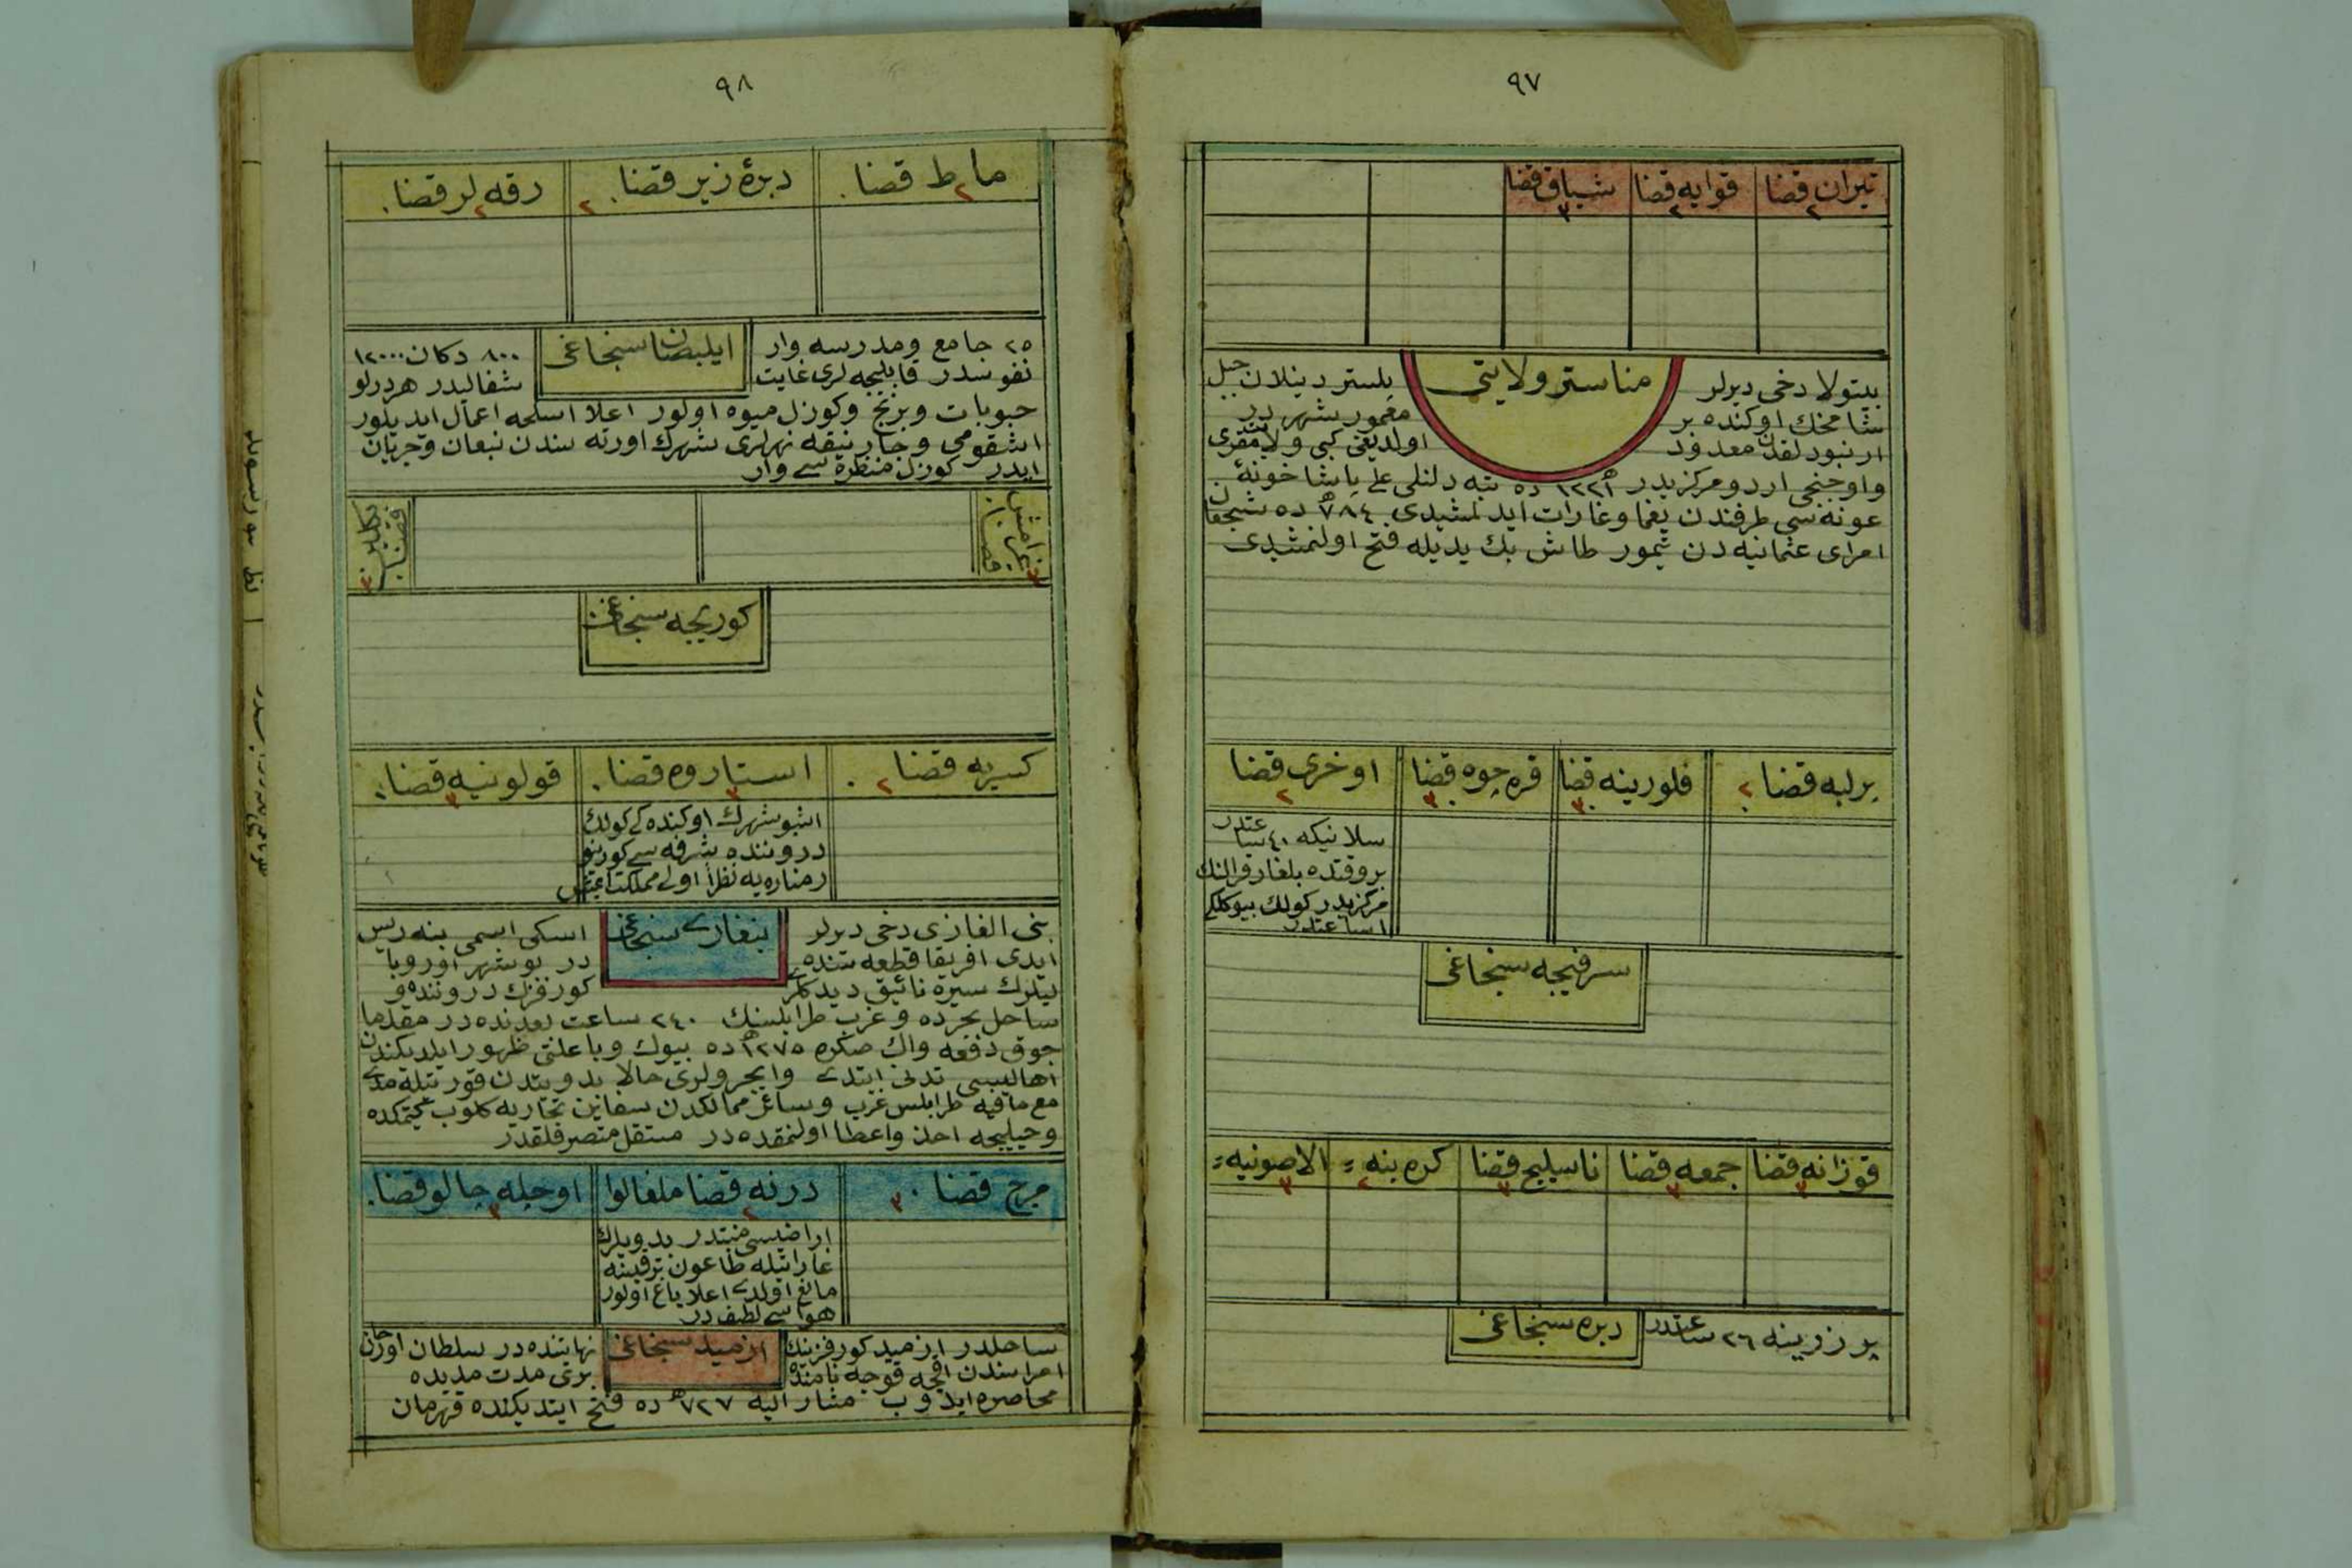 ٩٧
تیران قضا ٢
قوایه قضا ٢
شیاق قضا ٣
مناستر ولایتی
بیتولا دخی دیرلر
پلستر دینلان جبل
شامخك اوکنده بر
معمور شهر در
اولدیغی کبی ولایت مقری
واوچنجی اردو مرکزیدر ١٢٢١ ده تپه دلنلی علی پاشا خونهٔ
عونه سی طرفندن یغما وغارات ایدلمشیدی ٧٨٤ ده
امرای عثمانیه دن تیمور طاش بك یدیله فتح اولنمشیدی
پرلپه قضا ٢
فلورینه قضا ٣
قره جوه قضا ٣
اوخری قضا ٢
سلانیکه ٤٠ ساعتدر
بر وقتده بلغار قرالنك
مرکزیدر کولك بیوکلکی
ساعتدر
سرفیجه سنجاغی
قوزانه قضا ٣
جمعه قضا ٣
ناسلیج قضا ٣
کره بنه = ٢
الاصونیه = ٣
دبره سنجاغی
پرزرینه ٢٦ ساعتدر
٩٨
ماط قضا ٢
دبرهٔ زیر قضا ٢
رقه لر قضا ٢
ایلبصان سنجاغی
٢٥ جامع ومدرسه وار
٨٠٠ دکان ١٢٠٠٠
نفوسدر قاپلیجه لری غایت
شفالیدر هر درلو
حبوبات وبرنج وکوزل میوه اولور اعلا اسلحه اعمال ایدیلور
اشقومبی وجارنیقه نهرلری شهرك اورته سندن نبعان وجریان
ایدر کوزل منظره سی وار
غرامش قضا ٣
پکلین قضا ٣
کوریجه سنجاغی
کسریه قضا ٢
استاروه قضا ٣
قولونیه قضا ٣
اشبو شهرك اوکنده کی کولك
دروننده شرفه سی کورینو
ر مناره یه نظرا اولی مملکت
بنغازی سنجاغی
بنی الغازی دخی دیرلر
اسکی اسمی برنیس
ایدی افریقا قطعه سنده
در بو شهر اوروپا
لیلرك سیره نائیق دیدکلری
کورفزك دروننده و
ساحل بحرده و غرب طرابلسنك ٢٤٠ ساعت بعدنده در مقدما
چوق دفعه واك صکره ١٢٧٥ ده بیوك وبا علتی ظهور ایلدیکندن
اهالیسی تدنی ایتدی وایچرولری حالا بدویتدن قورتیله مدی
مع ما فیه طرابلس غرب وسائر ممالکدن سفاین تجاریه کلوب کیتمکده
وخیلیجه اخذ واعطا اولنمقده در مستقل متصرفلقدر
مرج قضا ٣
درنه قضا ملغالوا ٢
اوجله جالو قضا ٣
اراضیسی منبتدر بدویلرك
غاراتیله طاعون ترقیسنه
مانع اولدی اعلا باغ اولور
هواسی لطیفدر
ازمید سنجاغی
ساحلدر ازمید کورفزینك
نهایتنده در سلطان اورخان
امراسندن اقچه قوجه نامنده
بری مدت مدیده
محاصره ایدوب مشار الیه ٧٢٧ ده فتح ایتدیکنده قهرمان